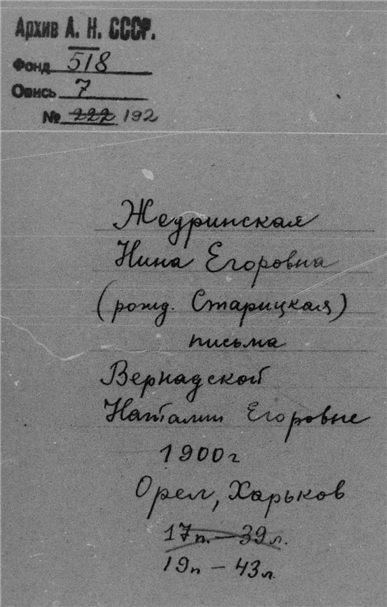 Архив А. Н. СССР.
Фонд 518
Опись 7
№ 222 192
Жедринская
Нина Егоровна
(рожд. Старицкая)
письма
Вернадской
Наталии Егоровне
1900 г
Орел, Харьков
17п. – 39 л.
19п – 43 л.